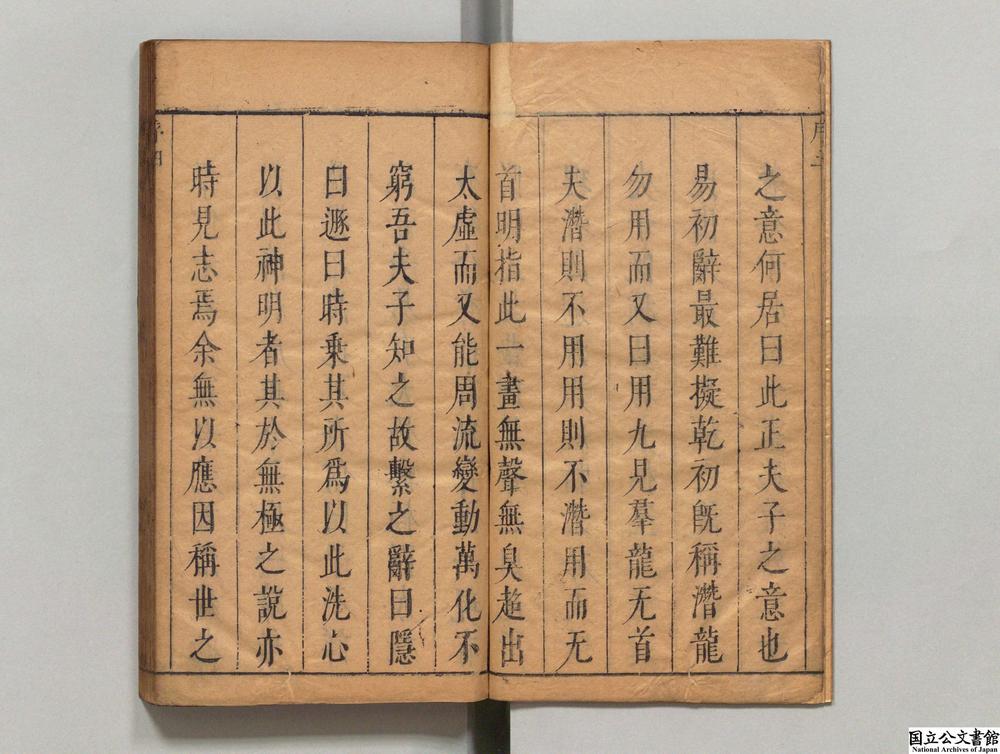 之意何居曰此正夫子之意也
易初辭最難擬乾初旣稱濳龍
勿用而又曰用九見羣龍无首
夫濳則不用用則不濳用而无
首明指此一畫無聲無臭超出
太虛而又能周流變動萬化不
窮吾夫子知之故繫之辭曰隱
曰遯曰時乗其所爲以此洗心
以此神明者其於無極之說亦
時見志焉余無以應因稱世之
国立公文書館
National Archives of Japan